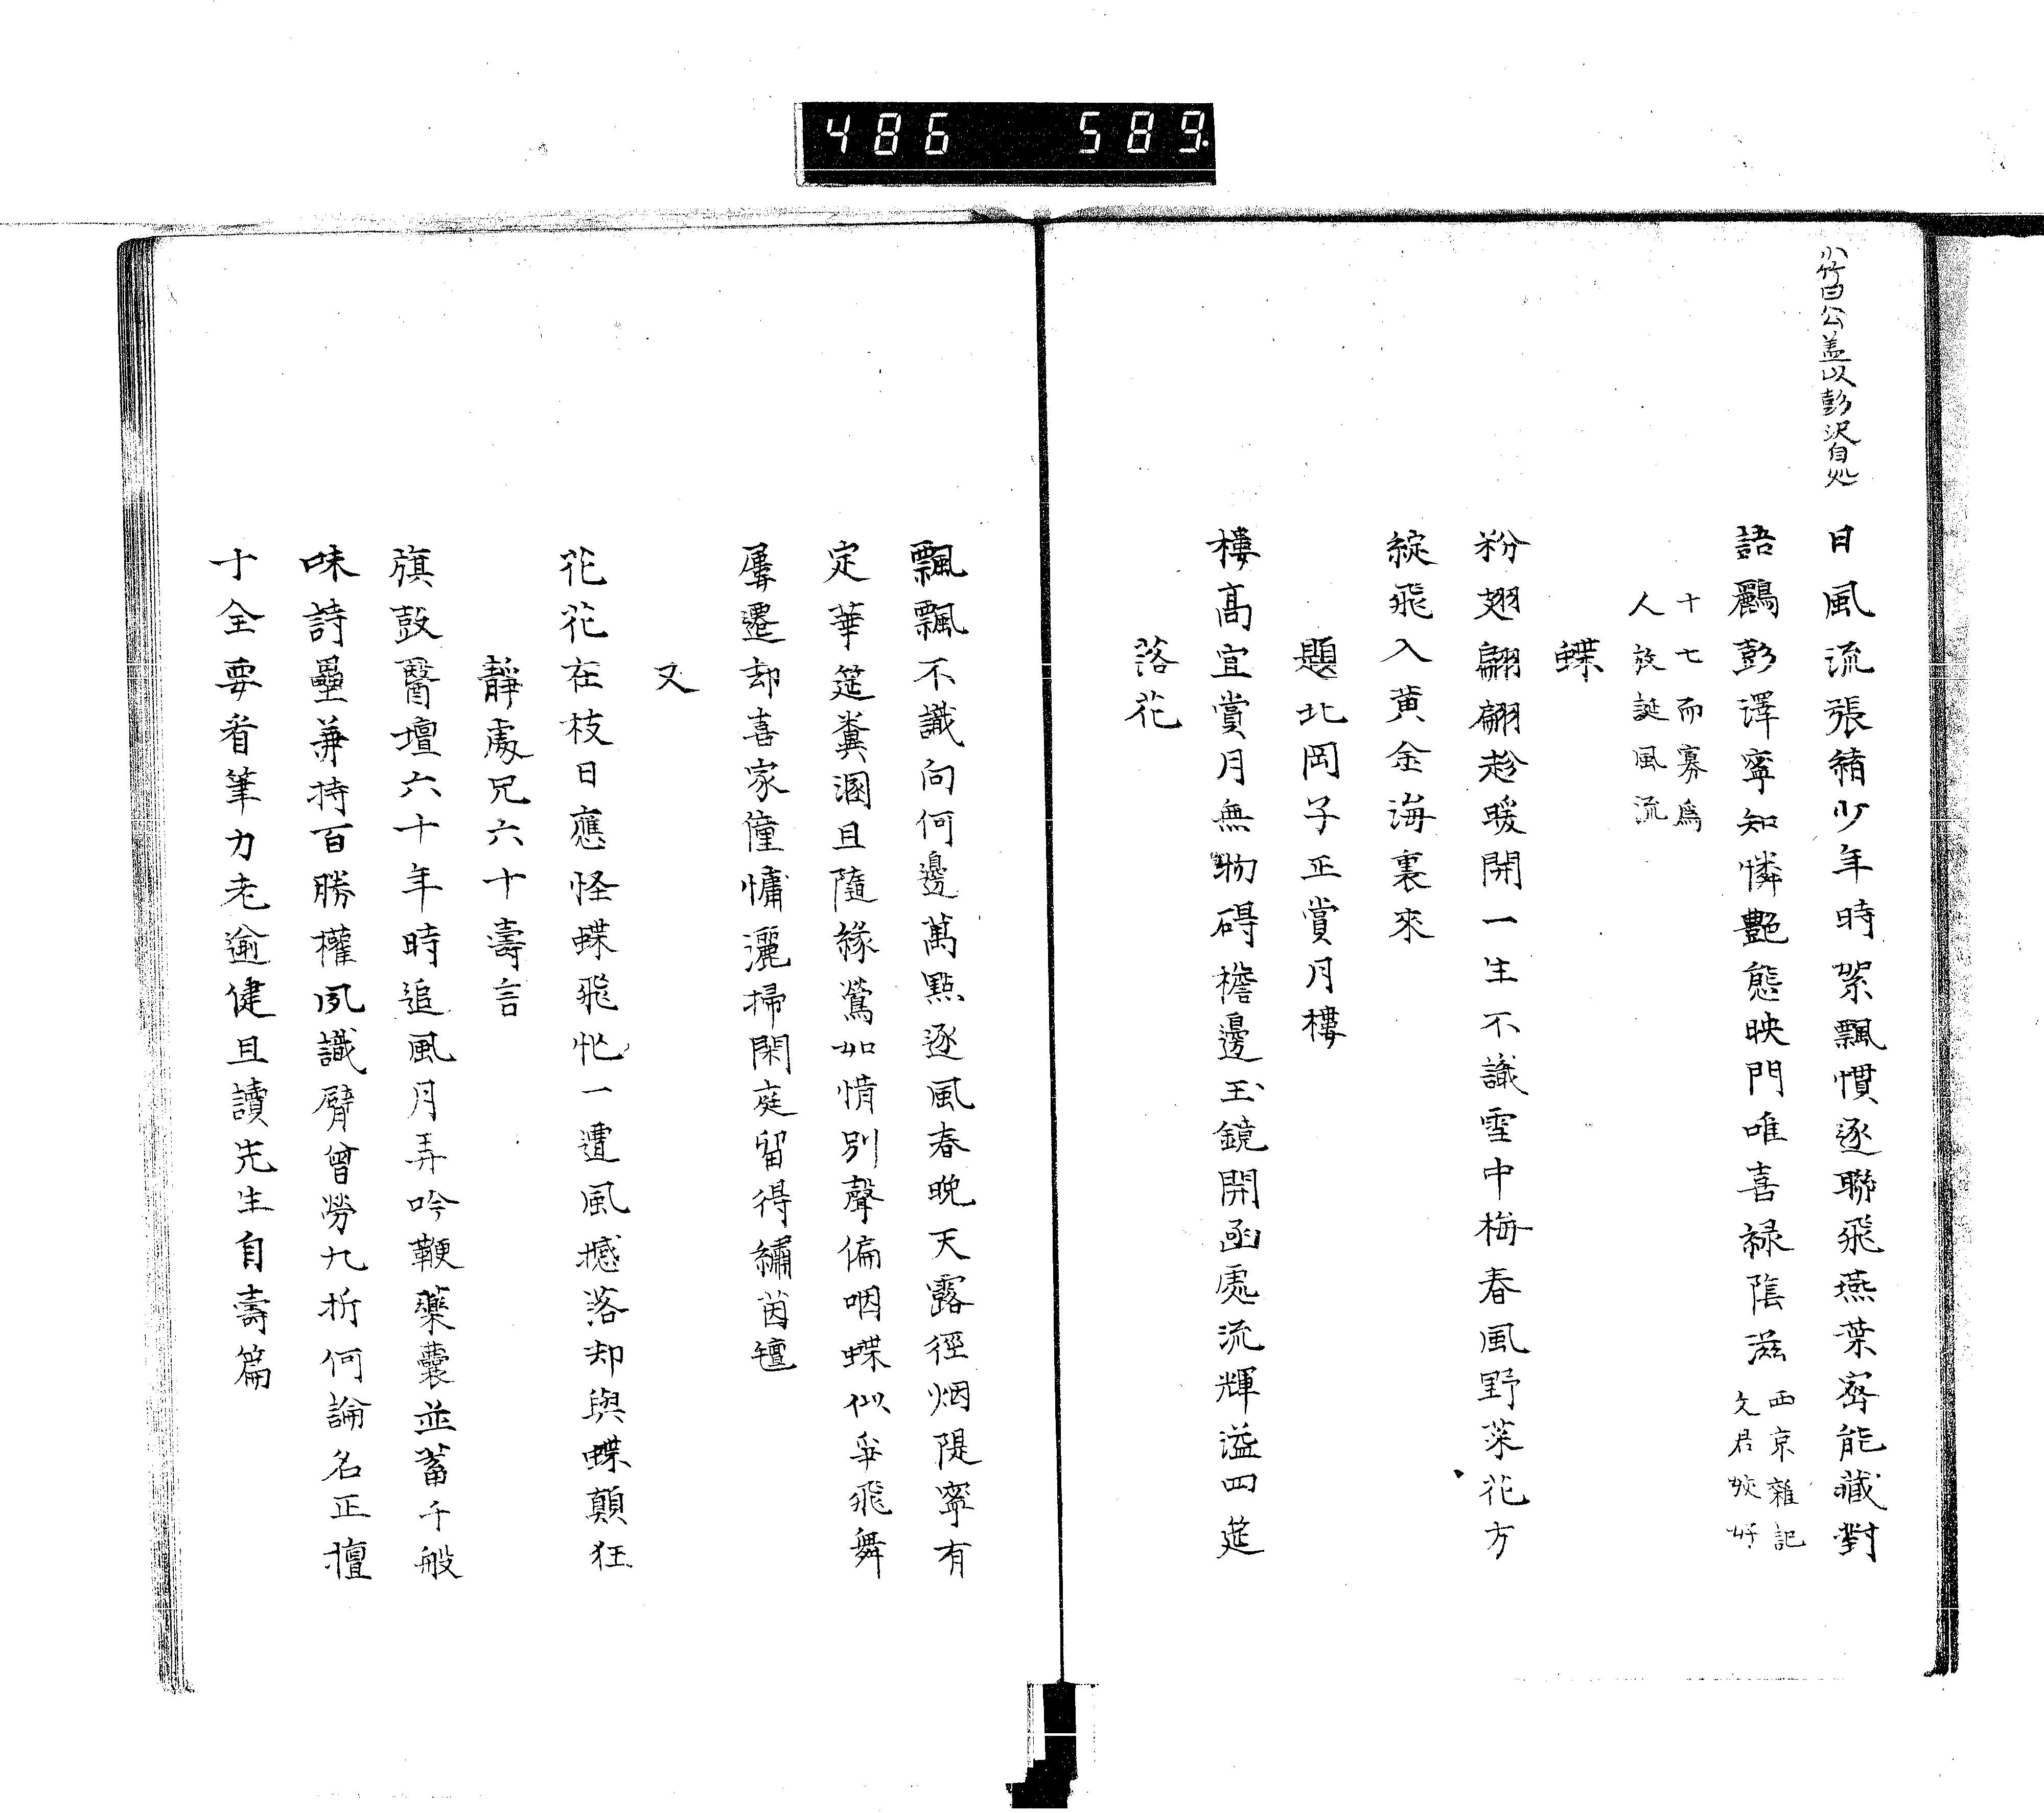 486 589.
小竹曰公盖以彭沢自処
日風流張緒少年時絮飄慣逐聯飛燕葉密能藏對
語鸝彭澤寧知憐艶態映門唯喜緑陰滋 西京雜記
文君姣好
十七而寡爲
人放誕風流
蝶
粉翅翩翩趁暖開一生不識雪中梅春風野菜花方
綻飛入黄金海裏來
題北岡子正賞月樓
樓高宜賞月無物碍檐邊玉鏡開函處流輝溢四筵
落花
飄飄不識向何邊萬點逐風春晩天露徑烟隄寧有
定華筵糞溷且隨緣鶯如惜別聲偏咽蝶似爭飛舞
屢遷却喜家僮慵灑掃閑庭留得繡茵氈
又
花花在枝日應怪蝶飛忙一遭風撼落却與蝶顛狂
靜處兄六十壽言
旗鼓醫壇六十年時追風月弄吟鞭藥囊並蓄千般
味詩壘兼持百勝權夙識臂曾勞九折何論名正擅
十全要看筆力老逾健且讀先生自壽篇